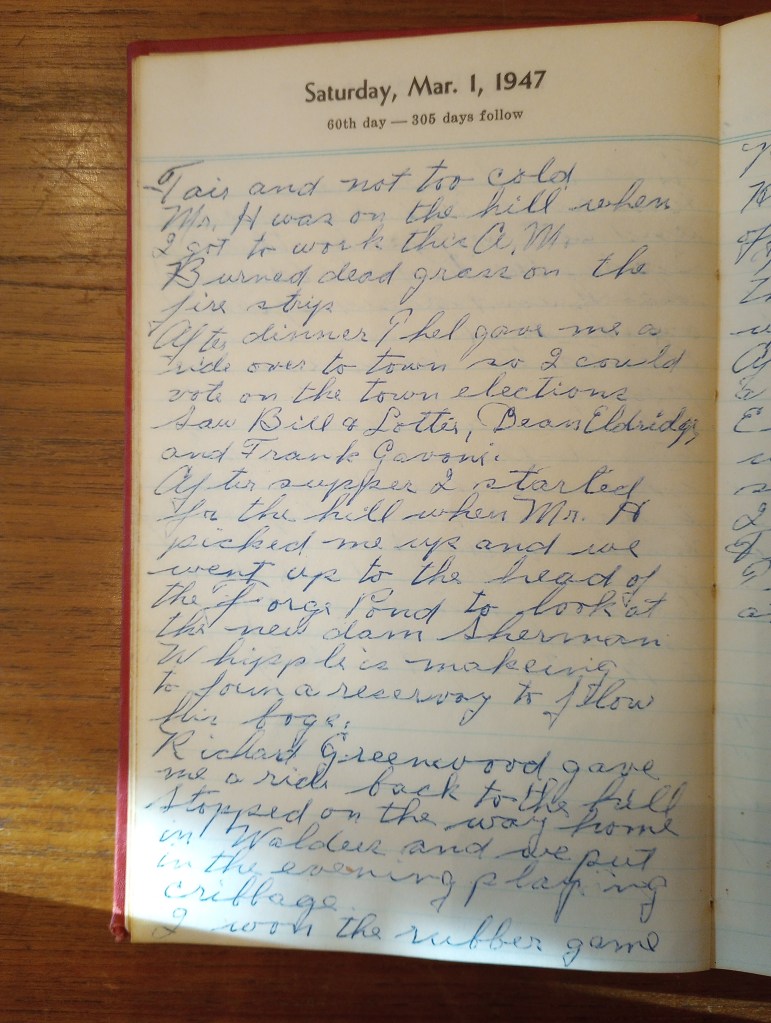 Saturday, Mar. 1, 1947
60th day — 305 days follow
Fair and not too cold
Mr. H was on the hill when
I got to work this A.M.
Burned dead grass on the
fire strip
After dinner Thel gave me a
ride over to town so I could
vote on the town elections
Saw Bill & Lottie, Dean Eldridge,
and Frank Gavoni.
After supper I started
for the hill when Mr. H
picked me up and we
went up to the head of
the Forge Pond to look at
the new dam Sherman
Whipple is makeing
to form a reservoy to flow
his bogs.
Richard Greenwood gave
me a ride back to the hill
Stopped on the way home
in Waldees and we put
in the evening playing
cribbage
I won the rubber game